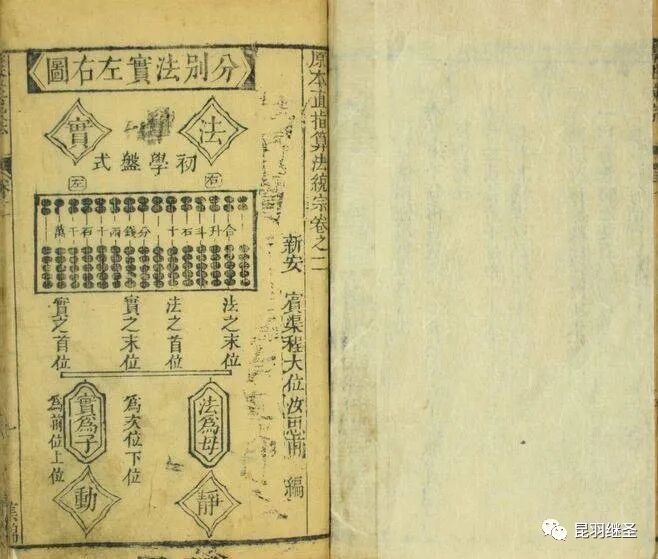 原本直指算法統宗卷之二
新安 賓渠程大位汝思甫 編
分別法實左右圖
法
實
初學盤式
右
左
合升斗石十分錢兩十千萬
法之末位
法之首位
實之末位
實之首位
法為母
靜
為次位下位
實為子
動
為前位上位
昆羽继圣